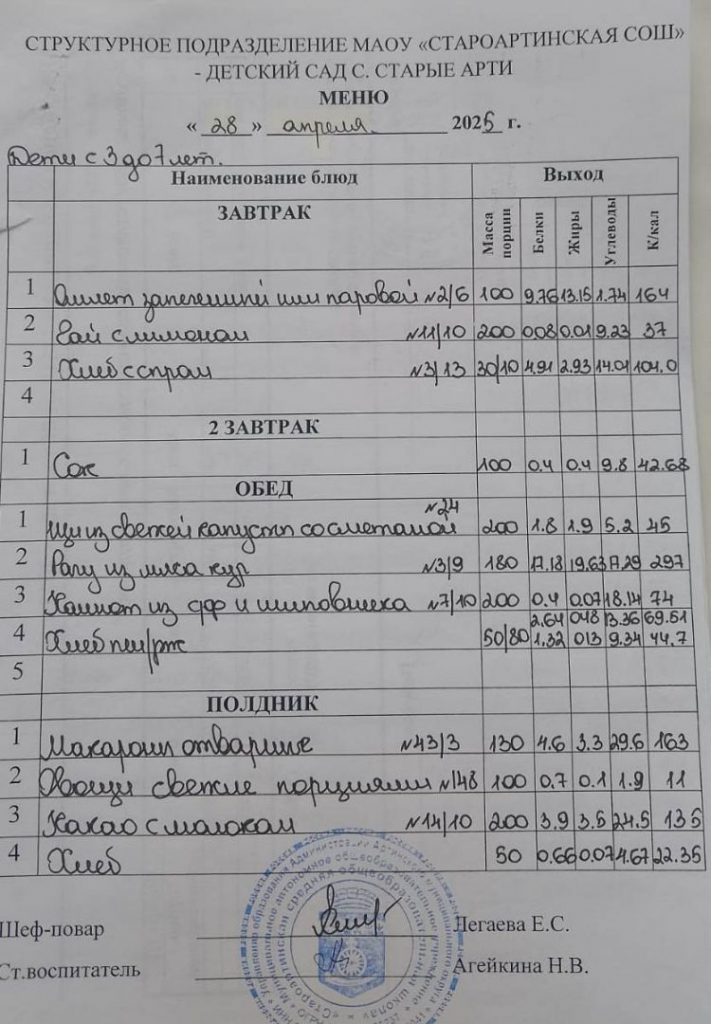 СТРУКТУРНОЕ ПОДРАЗДЕЛЕНИЕ МАОУ «СТАРОАРТИНСКАЯ СОШ»
- ДЕТСКИЙ САД С. СТАРЫЕ АРТИ
МЕНЮ
« 28 » апреля 2025 г.
Дети с 3 до 7 лет.
Наименование блюд Выход
ЗАВТРАК Масса порции Белки Жиры Углеводы К/кал
1 Омлет запеченный или паровой №2/6 100 9.76 13.15 1.74 164
2 Чай с лимоном №11/10 200 0.08 0.01 9.23 37
3 Хлеб с сыром №3/13 30/10 4.91 2.93 14.01 104.0
4
2 ЗАВТРАК
1 Сок 100 0.4 0.4 9.8 42.68
ОБЕД
1 Щи из свежей капусты со сметаной №24 200 1.8 1.9 5.2 45
2 Рагу из мяса кур №3/9 180 17.18 19.63 17.29 297
3 Компот из сфр и шиповника №7/10 200 0.4 0.07 18.14 74
2.64 0.48 13.36 69.51
4 Хлеб пш/рж 50/80 1.32 013 9.34 44.7
5
ПОЛДНИК
1 Макароны отварные №43/3 130 4.6 3.3 29.6 163
2 Овощи свежие порциями №148 100 0.7 0.1 1.9 11
3 Какао с молоком №14/10 200 3.9 3.5 24.5 135
4 Хлеб 50 0.66 0.07 4.67 22.35
Шеф-повар Легаева Е.С.
Ст.воспитатель Агейкина Н.В.